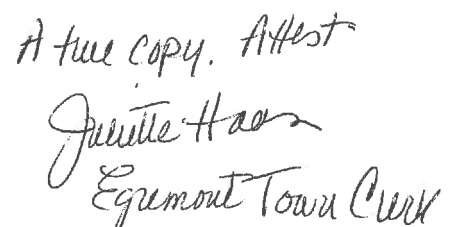 A true copy. Attest
Juliette Haas
Egremont Town Clerk